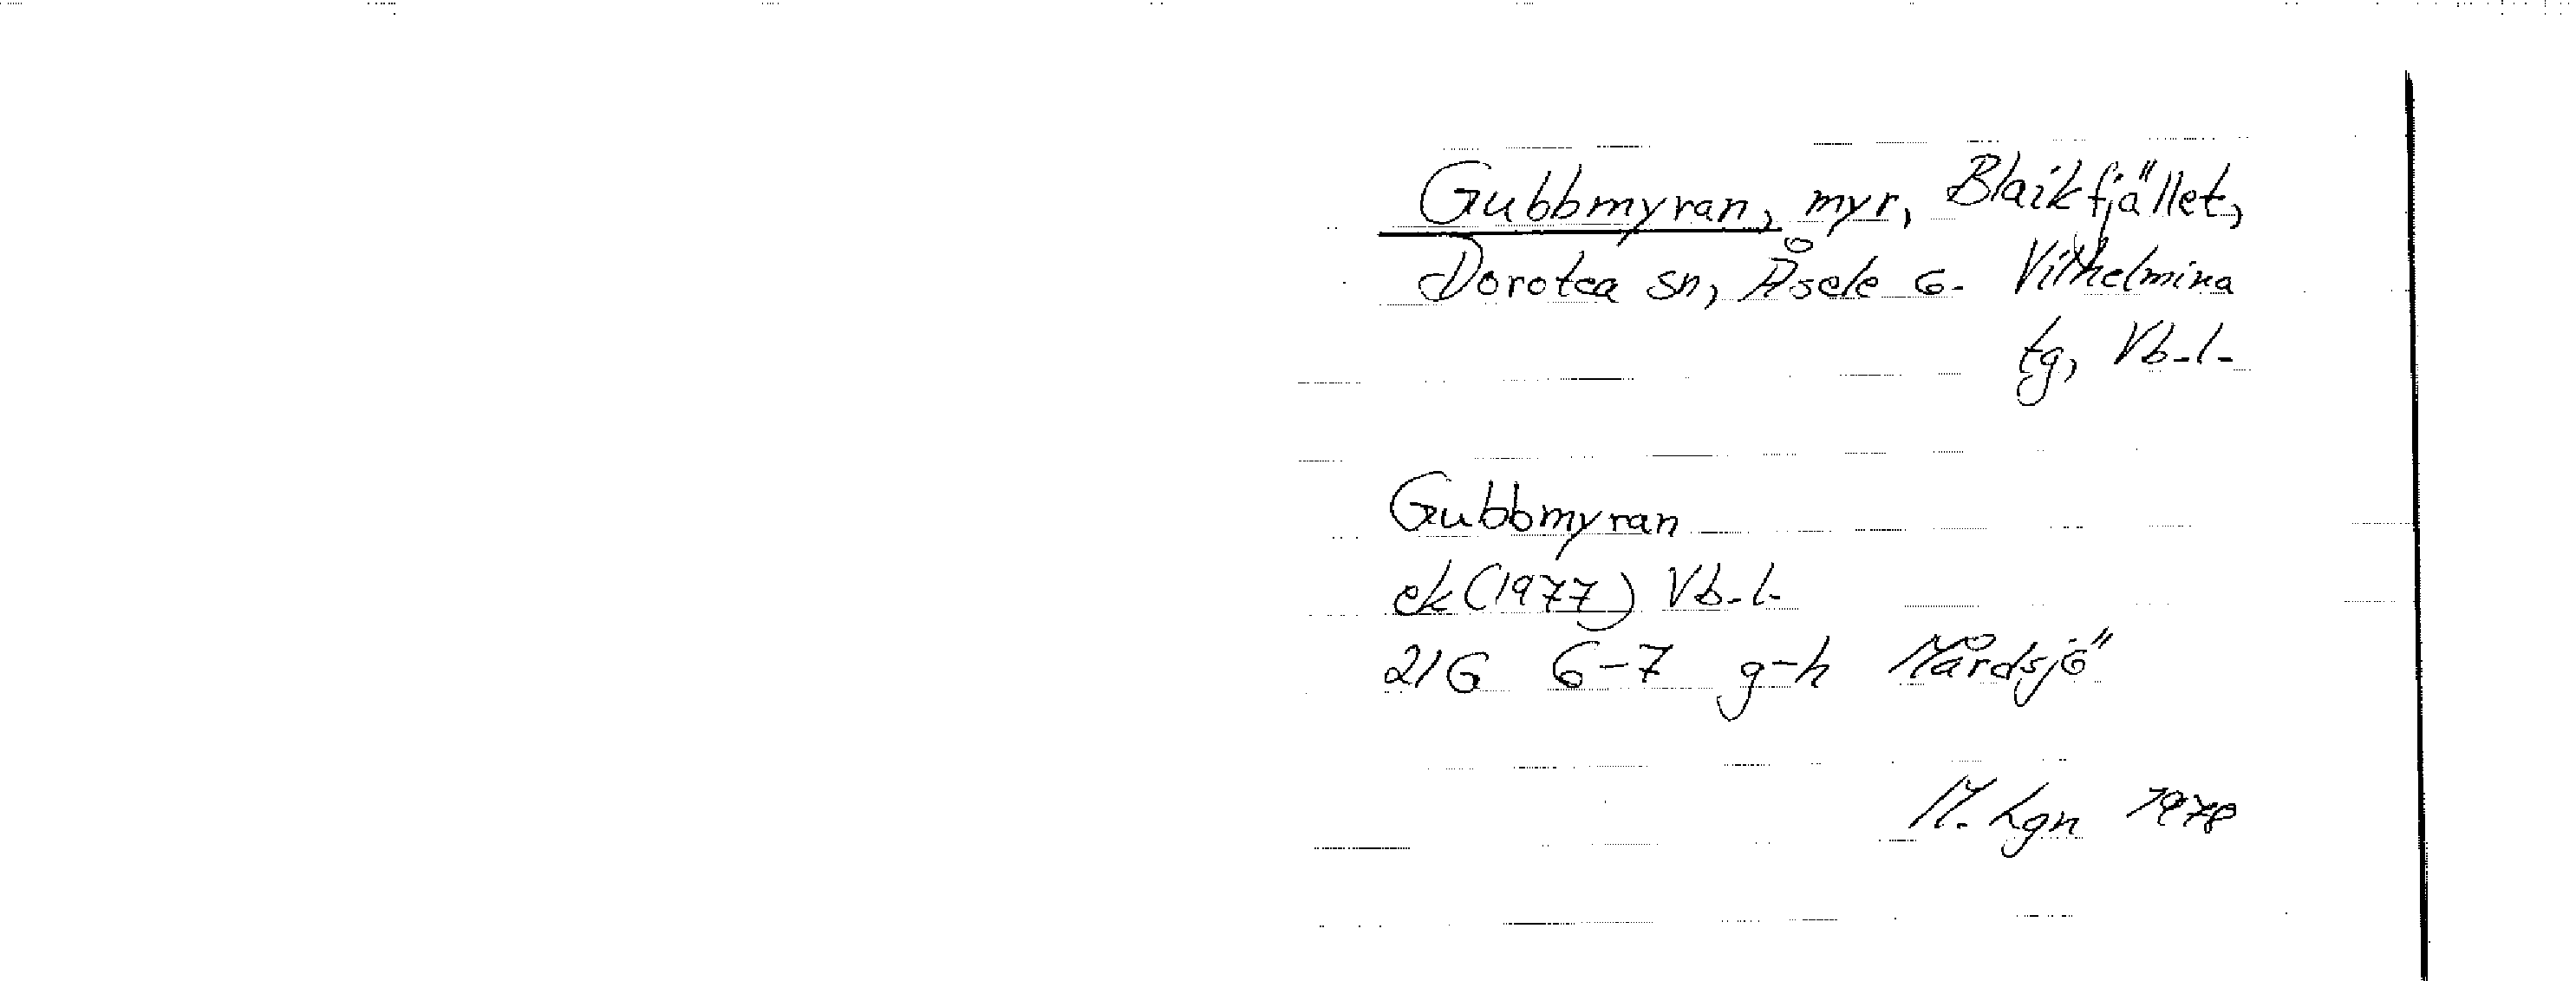 Gubbmyran, myr, Blaikfjället,
Dorotea sn, Åsele o. Vilhelmina
tg, Vb.l.
Gubbmyran
ek (1977) Vb.l.
21G 6-7 g-h Mårdsjö
M. Lgn 1978